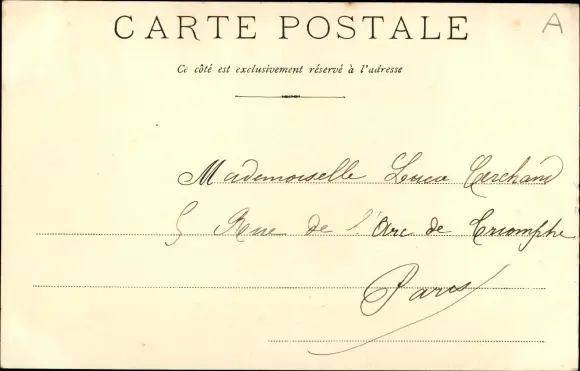 CARTE POSTALE
A
Ce côté est exclusivement réservé à l'adresse
Mademoiselle
5 Rue de l'Arc de Triomphe
Paris